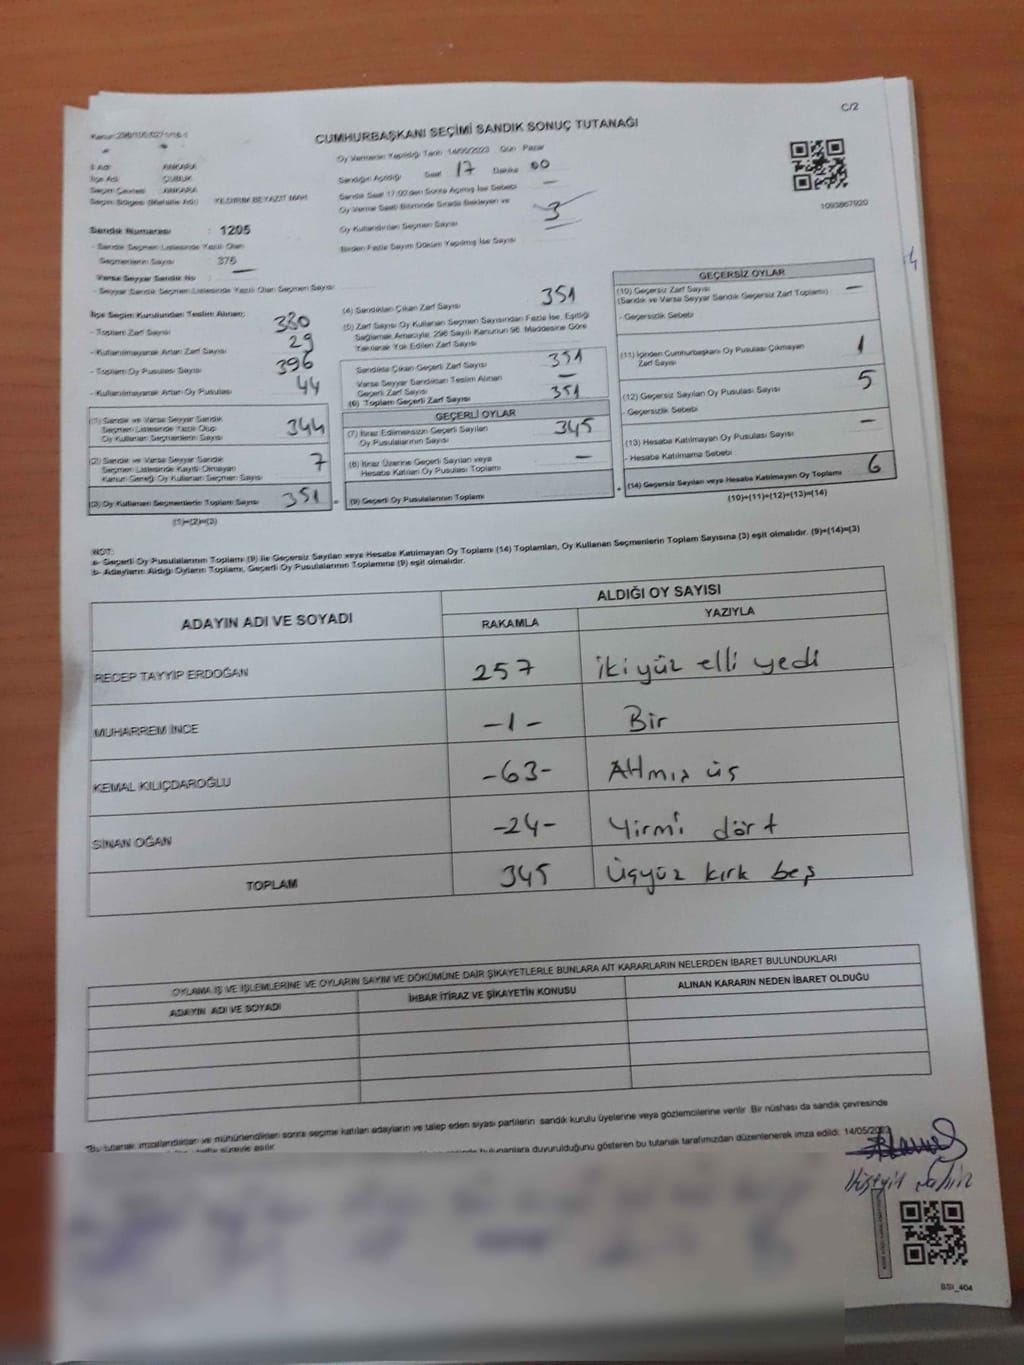 C/2
CUMHURBAŞKANI SEÇİMİ SANDIK SONUÇ TUTANAĞI
Oy Vermenin Yapıldığı Tarih :14/05/2023 Gün : Pazar
İl Adı : ANKARA
Sandığın Açıldığı Saat 17 Dakika 00
İlçe Adı : ÇUBUK
Sandık Saat 17:00'den Sonra Açılmış İse Sebebi —
Seçim Çevresi : ANKARA
Oy Verme Saati Bitiminde Sırada Bekleyen ve
Seçim Bölgesi (Mahalle Adı) : YILDIRIM BEYAZIT MAH.
Oy Kullandırılan Seçmen Sayısı 3
1093867920
Sandık Numarası : 1205
Birden Fazla Sayım Döküm Yapılmış İse Sayısı
- Sandık Seçmen Listesinde Yazılı Olan
Seçmenlerin Sayısı : 376
Varsa Seyyar Sandık No : —
- Seyyar Sandık Seçmen Listesinde Yazılı Olan Seçmen Sayısı :
İlçe Seçim Kurulundan Teslim Alınan;
- Toplam Zarf Sayısı 380
- Kullanılmayarak Artan Zarf Sayısı 29
- Toplam Oy Pusulası Sayısı 396
- Kullanılmayarak Artan Oy Pusulası 44
(1) Sandık ve Varsa Seyyar Sandık
Seçmen Listesinde Yazılı Olup
Oy Kullanan Seçmenlerin Sayısı 344
(2) Sandık ve Varsa Seyyar Sandık
Seçmen Listesinde Kayıtlı Olmayan
Kanun Gereği Oy Kullanan Seçmen Sayısı 7
(3) Oy Kullanan Seçmenlerin Toplam Sayısı 351
(1)+(2)=(3)
(4) Sandıktan Çıkan Zarf Sayısı 351
(5) Zarf Sayısı Oy Kullanan Seçmen Sayısından Fazla İse, Eşitliği
Sağlamak Amacıyla; 298 Sayılı Kanunun 98. Maddesine Göre
Yakılarak Yok Edilen Zarf Sayısı
Sandıkta Çıkan Geçerli Zarf Sayısı 351
Varsa Seyyar Sandıktan Teslim Alınan
Geçerli Zarf Sayısı —
(6) Toplam Geçerli Zarf Sayısı 351
GEÇERLİ OYLAR
(7) İtiraz Edilmeksizin Geçerli Sayılan
Oy Pusulalarının Sayısı 345
(8) İtiraz Üzerine Geçerli Sayılan veya
Hesaba Katılan Oy Pusulası Toplamı —
= (9) Geçerli Oy Pusulalarının Toplamı
GEÇERSİZ OYLAR
(10) Geçersiz Zarf Sayısı
(Sandık ve Varsa Seyyar Sandık Geçersiz Zarf Toplamı) —
- Geçersizlik Sebebi
(11) İçinden Cumhurbaşkanı Oy Pusulası Çıkmayan
Zarf Sayısı 1
(12) Geçersiz Sayılan Oy Pusulası Sayısı 5
- Geçersizlik Sebebi
(13) Hesaba Katılmayan Oy Pusulası Sayısı —
- Hesaba Katılmama Sebebi
+ (14) Geçersiz Sayılan veya Hesaba Katılmayan Oy Toplamı 6
(10)+(11)+(12)+(13)=(14)
NOT:
a- Geçerli Oy Pusulalarının Toplamı (9) ile Geçersiz Sayılan veya Hesaba Katılmayan Oy Toplamı (14) Toplamları, Oy Kullanan Seçmenlerin Toplam Sayısına (3) eşit olmalıdır. (9)+(14)=(3)
b- Adayların Aldığı Oyların Toplamı, Geçerli Oy Pusulalarının Toplamına (9) eşit olmalıdır.
ADAYIN ADI VE SOYADI ALDIĞI OY SAYISI
RAKAMLA YAZIYLA
RECEP TAYYİP ERDOĞAN 257 iki yüz elli yedi
MUHARREM İNCE -1- Bir
KEMAL KILIÇDAROĞLU -63- Altmış üç
SİNAN OĞAN -24- Yirmi dört
TOPLAM 345 üçyüz kırk beş
OYLAMA İŞ VE İŞLEMLERİNE VE OYLARIN SAYIM VE DÖKÜMÜNE DAİR ŞİKAYETLERLE BUNLARA AİT KARARLARIN NELERDEN İBARET BULUNDUKLARI
ADAYIN ADI VE SOYADI İHBAR İTİRAZ VE ŞİKAYETİN KONUSU ALINAN KARARIN NEDEN İBARET OLDUĞU
"Bu tutanak imzalandıktan ve mühürlendikten sonra seçime katılan adayların ve talep eden siyasi partilerin sandık kurulu üyelerine veya gözlemcilerine verilir. Bir nüshası da sandık çevresinde
bulunanlara duyurulduğunu gösteren bu tutanak tarafımızdan düzenlenerek imza edildi. 14/05/2023
Hüseyin Şahin
BSI_404